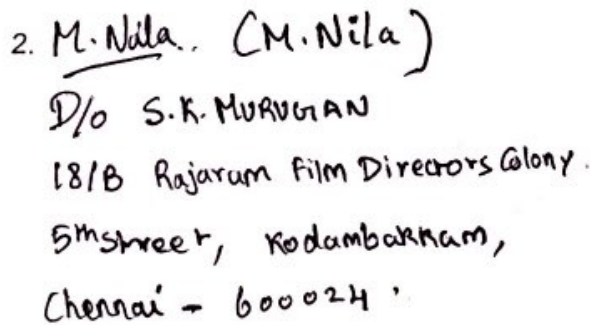 2. M. Nila.. (M. Nila)
D/o S.K. MURUGAN
18/B Rajaram Film Directors Colony.
5th Street, Kodambakkam,
Chennai - 600024.